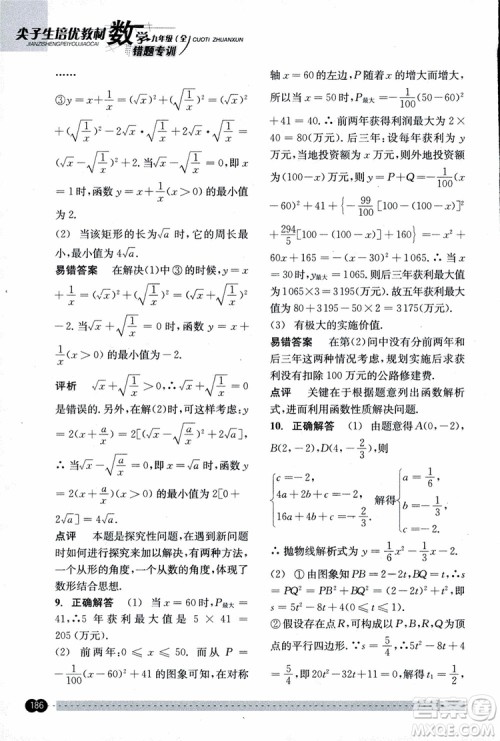 尖子生培优教材 数学 九年级(全) CUOTI ZHUANXUN
JIANZISHENGPEIYOUJIAOCAI 错题专训
……
③y=x+1/x=(√x)²+(√(1/x))²=(√x)²
+(√(1/x))²-2√x·√(1/x)+2√x·√(1/x)=
(√x-√(1/x))²+2, 当√x-√(1/x)=0, 即 x
=1时, 函数 y=x+1/x (x>0)的最小
值为 2.
(2) 当该矩形的长为√a时, 它的周长
最小, 最小值为 4√a.
易错答案 在解决(1)中③的时候, y=
x+1/x=(√x)²+(√(1/x))²=(√x+√(1/x))²
-2. 当√x+√(1/x)=0时, 函数 y=x+
1/x (x>0)的最小值为-2.
评析 √x+√(1/x)>0, √x+√(1/x)=0
是错误的. y=2(x+a/x)=2[(√x-√(a/x))²
+2√a](x>0), 当√x-√(a/x)=0时, x=
√a. ∴当 x=√a时, y的最小值为 2[0+
2√a]=4√a.
点评 本题是探究性问题, 在遇到新问
题时如何进行探究来加以解决, 有时从
一个点的角度, 一个从数的角度, 体现了
数形结合思想.
9. 正确解答 (1) 当 x=60时, P最大=
41, ∴5年获利最大值是 5×41=
205(万元).
(2) 前两年: 0≤x≤50. 而从 P=
-1/100(x-60)²+41的图象可知, 在对称
轴 x=60的左边, P随 x的增大而增大,
所以当 x=50时, P最大=-1/100(50-60)²
+41=40. ∴前两年获得利润最大为
40×2=80(万元). 后三年: 设每年用
x(万元)投资本地销售, 则投资外地额为
(100-x)(万元), y=P+Q=-1/100(x
-60)²+41+{-99/100[100-(100-x)]²+
294/5[100-(100-x)]+160}=-x²+
60x+165=-(x-30)²+1065. ∴当
x=30时, y最大=1065. ∴后三年获利最
大值为 1065×3=3195(万元), 故五年获利最大
值为 80+3195-50×2=3175(万元).
(3) 有极大的实施价值.
易错答案 在第(2)问中没有分前两年
和后三年, 规划实施利润没有减去前两
年每年 50万元的公路修建费.
点评 关键在于根据题意列出函数解析
式, 利用函数性质解决问题.
10. 正确解答 (1) 由题意得A(0,-2),
B(2,-2),D(4,-2/3), 则
{c=-2, 4a+2b+c=-2, 16a+4b+c=-2/3, 解得{a=1/6, b=-1/3, c=-2.
∴抛物线解析式为 y=1/6x²-1/3x-2.
(2) ①由图象知 PB=2-2t, BQ=t,
∴S=PQ²=PB²+BQ²=(2-2t)²+t²,
即 S=5t²-8t+4(0≤t≤1).
②假设存在点R, 可构成以PB为一边
的平行四边形: ∵S=5/4, ∴5t²-8t+4=
186